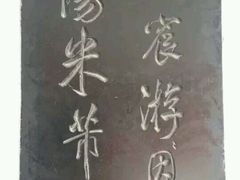 宸游因
陽米芾